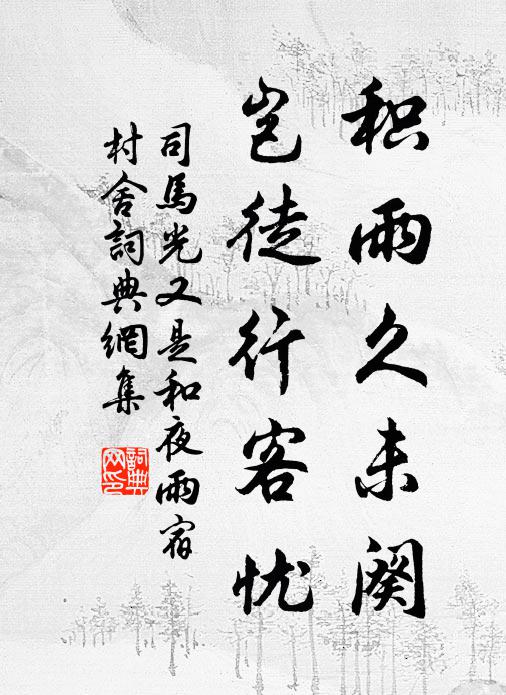 积雨久未阕
岂徒行客忧
司馬光又是和夜雨宿
村舍詞典網集
詞典网印